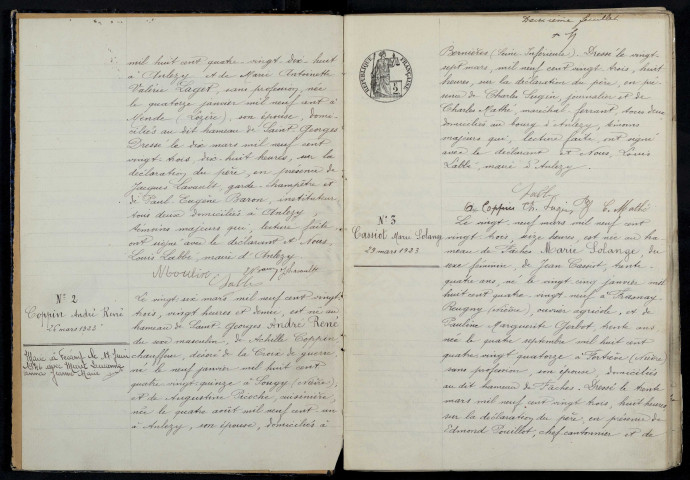 mil huit cent quatre vingt dix huit
à Anlezy et de Marie Antoinette
Valérie Laget, sans profession, née
le quatorze janvier mil neuf cent à
Mende (Lozère), son épouse, domi-
ciliés au dit hameau de Saint Georges
Dressé le dix mars mil neuf cent
vingt trois, dix huit heures, sur la
déclaration du père, en présence de
Jacques Lavault, garde champêtre et
de Paul Eugène Baron, instituteur
tous deux domiciliés à Anlezy,
témoins majeurs qui, lecture faite
ont signé avec le déclarant et Nous,
Louis Labbé, maire d'Anlezy.
Baron Lavault
Labbé
N° 2
Coppin André René
26 mars 1923
Marié à le 18 Juin
avec
Le vingt six mars mil neuf cent vingt
trois, vingt heures et demie, est né au
hameau de Saint Georges André René
du sexe masculin, de Achille Coppin
chauffeur, décoré de la Croix de guerre
né le neuf janvier mil huit cent
quatre vingt quinze à Sougy (Nièvre),
et de Augustine Picoche, cuisinière,
née le quatre août mil neuf cent un
à Anlezy, son épouse, domiciliés à
Deuxième feuillet
RÉPUBLIQUE FRANÇAISE
Bernières (Seine Inférieure). Dressé le vingt
sept mars, mil neuf cent vingt trois, huit
heures, sur la déclaration du père, en pré-
sence de Charles Lugin, journalier et de
Charles Mathé maréchal ferrant, tous deux
domiciliés au bourg d'Anlezy, témoins
majeurs qui, lecture faite, ont signé
avec le déclarant et Nous, Louis
Labbé, maire d'Anlezy.
Labbé
Coppin Ch. C. Mathé
N° 3
Cassiot Marie Solange
29 mars 1923
Le vingt neuf mars mil neuf cent
vingt trois, seize heures, est née au ha-
meau de Fâches Marie Solange, du
sexe féminin, de Jean Cassiot, trente
quatre ans, né le vingt cinq janvier mil
huit cent quatre vingt neuf à Fresnay
Reugny (Nièvre), ouvrier agricole, et de
Pauline Marguerite Gerbot, trente ans
née le quatre septembre mil huit cent
quatre vingt quatorze à (Nièvre)
sans profession, son épouse, domiciliés
au dit hameau de Fâches. Dressé le trente
mars mil neuf cent vingt trois, huit heures
sur la déclaration du père, en présence de
Edmond Pouillot, chef cantonnier et de